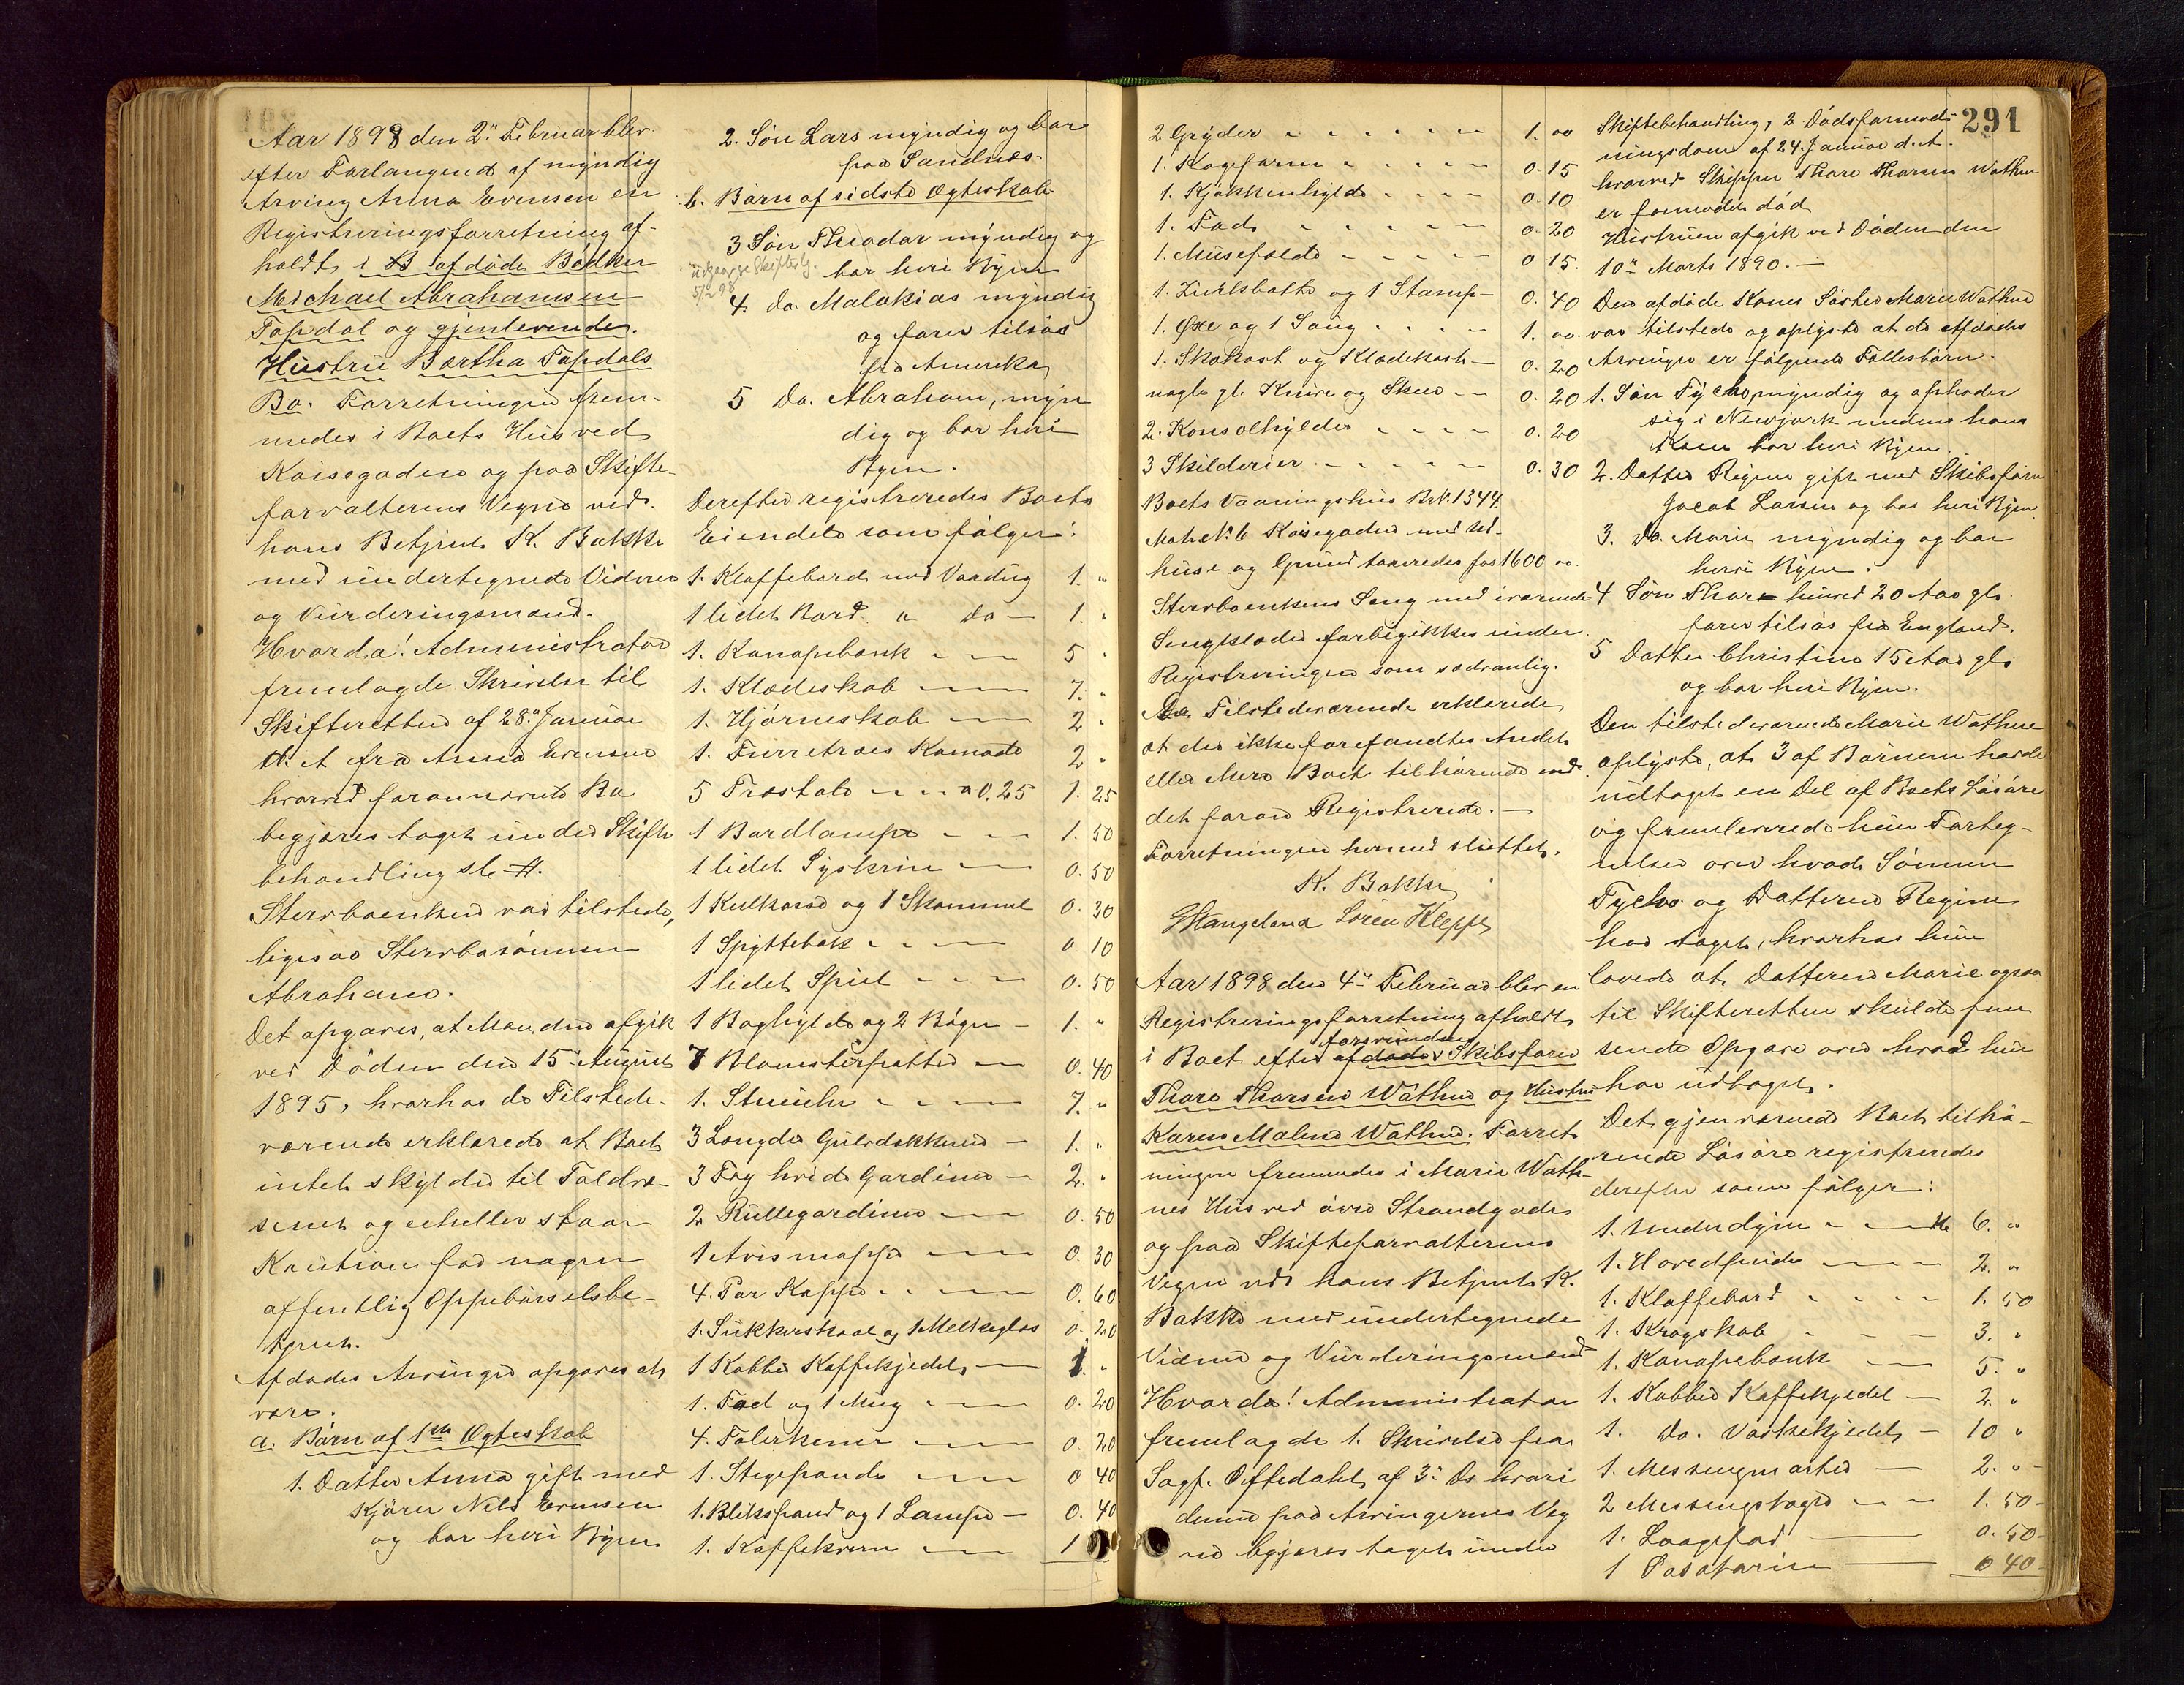 Aar 1898 den 2n Februar blev
efter Forlangende af myndig
Arving Anna Evensen en
Registreringsforretning af-
holdt i afdøde Bødker
Michael Abrahamsen
Topdal og gjenlevende
Hustru Bertha Topdals
Bo. Forretningen frem-
medes i Boets Hus ved
Kaisegaden og paa Skifte-
forvalterens Vegne ved
hans Betjent K. Bakke
med undertegnede Vidner
og Vurderingsmænd.
Hvorda! Administrator
fremlagde Skrivelse til
Skifteretten af 28. Januar
d. A fra Anna Evensen
hvorved forannævnte Bo
begjæres taget under Skifte
behandling
Sterboenken var tilstede,
ligesaa Sterbosønnen
Abraham.
Det opgaves, at Manden afgik
ved Døden den 15 August
1895, hvorhos de Tilstede-
værende erklærede at Boet
intet skylder til Toldvæ-
senet og eiheller staar
Kaution for nogen
offentlig Oppebørselsbe-
tjent.
Afdødes Arvinger opgaves at
være.
a. Børn af 1ste Ægteskab
1. Datter Anna gift med
Kjører Nils Evensen
og bor heri Byen
2. Søn Lars myndig og bor
paa Sandnæs.
b. Børn af sidste Ægteskab
3 Søn Theodor myndig og
bor heri Byen
5/2 98
4. Do. Malakias myndig
og farer tilsøs
fra Amerika
5 Do. Abraham, myn
dig og bor heri
Byen.
Derefter registreredes Boets
Eiendele som følger:
1. Klaffebord med Voxdug 1. "
1 lidet Bord " Do — 1. "
1. Kanapebænk — 5 "
1. Klædeskab — 7. "
1. Hjørneskab — 2 "
1. Furretræes Komode 2 "
5 Træstole — a 0.25 1. 25
1 Bordlampe — 1. 50
1 lidet Syskrin — 0. 50
1 Kulkasse og 1 Skammel 0. 30
1 Spyttebak — 0. 10
1 lidet Speil — 0. 50
1 Boghylde og 2 Bøger — 1. "
7 Blomsterpotter — 0. 40
1. Stueuhr — 7. "
3 Længder Gulvdækkener — 1. "
3 Fag hvide Gardiner — 2. "
2 Rullegardiner — 0. 50
1 Avismappe — 0. 30
4. Par Kopper — 0. 60
1. Sukkerskaal og 1 Melkeglas 0. 20
1 Kobber Kaffekjedel — 1. "
1. Fad og 1 Mug — 0. 20
4. Tallerkener — 0. 20
1. Stegepande — 0 40
1. Blikspand og 1 Lampe — 0. 40
1. Kaffekvern — 1
291
2 Gryder — 1. 00
1. Kageform — 0. 15
1. Kjøkkenhylde — 0. 10
1. Fad — 0. 20
1. Musefælde — 0 15.
1. Zinkbøtte og 1 Stamp — 0. 40
1. Øxe og 1 Saug — 1. 00.
1. Skokost og Klædekost — 0. 20
nogle gl. Knive og Skeer — 0. 20
2. Konsolhylder — 0. 20
3 Skilderier — 0. 30
Boets Vaaningshus Br. 1344.
Matr. No. 6 Kaisegaden med Ud-
huse og Grund taxeredes for 1600 00.
Sterboenkens Seng med iværende
Sengklæder forbigikkes under
Registreringen som sædvanlig.
De Tilstedeværende erklærede
at der ikke forefandtes Andet
eller Mere Boet tilhørende end
det foran Registrerede. —
Forretningen hermed sluttet.
K. Bakke
Stangeland Søren Kleppe
Aar 1898 den 4de Februar blev en
Registreringsforretning afholdt
forsvundne
i Boet efter afdøde Skibsfører
Thore Thorsen Wathne og Hustru
Karen Malene Wathne. Forret-
ningen fremmedes i Marie Wath-
nes Hus ved øvre Strandgade
og paa Skifteforvalterens
Vegne ved hans Betjent K.
Bakke med undertegnede
Vidner og Vurderingsmænd
Hvorda! Administrator
fremlagde 1. Skrivelse fra
Sagf. Oftedahl af 3. Ds. hvori
denne paa Arvingernes Veg
ne begjæres taget under
Skiftebehandling, 2 Dødsformod-
ningsdom af 24. Januar d. A.
hvorved Skipper Thore Thorsen Wathne
er formodet død.
Hustruen afgik ved Døden den
10n Marts 1890. —
Den afdøde Kones Søster Marie Wathne
var tilstede og oplyste at de Afdødes
Arvinger er følgende Fællesbørn.
1. Søn Tycho, myndig og opholder
sig i Newjork medens hans
Kone bor heri Byen
2. Datter Regine gift med Skibsfører
Jacob Larsen og bor heri Byen.
3. Do. Marie myndig og bor
heri Byen.
4 Søn Thore henved 20 Aar gl.
farer tilsøs fra England.
5 Datter Christine 15 Aar gl.
og bor heri Byen.
Den tilstedeværende Marie Wathne
oplyste, at 3 af Børnene havde
udtaget en Del af Boets Løsøre
og fremleverede hun Forteg-
nelse over hvad Sønnen
Tycho og Datteren Regine
har taget, hvorhos hun
lovede at Datteren Marie ogsaa
til Skifteretten skulde frem
sende Opgave over hvad hun
har udtaget.
Det gjenværende Boet tilhø-
rende Løsøre registreredes
derefter som følger:
1. Underdyne — Kr 6. "
1. Hovedpude — 2. "
1. Klaffebord — 1. 50
1. Krogskab — 3. "
1. Kanapebænk — 5. "
1. Kobber Kaffekjedel — 2. "
1. Do. Vaskekjedel — 10 "
1. Messingmorter — 2. "
2 Messingstager — 1. 50
1. Laagefad — 0. 50
1 — 0 40